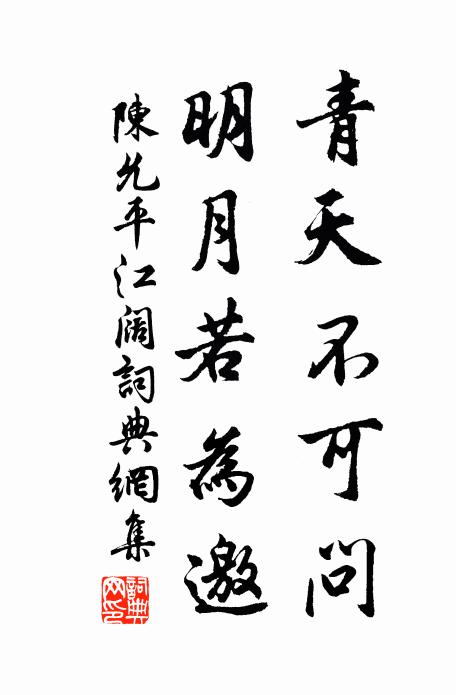 青天不可問
明月若為邀
陳允平江闊詞典網集
詞典网印